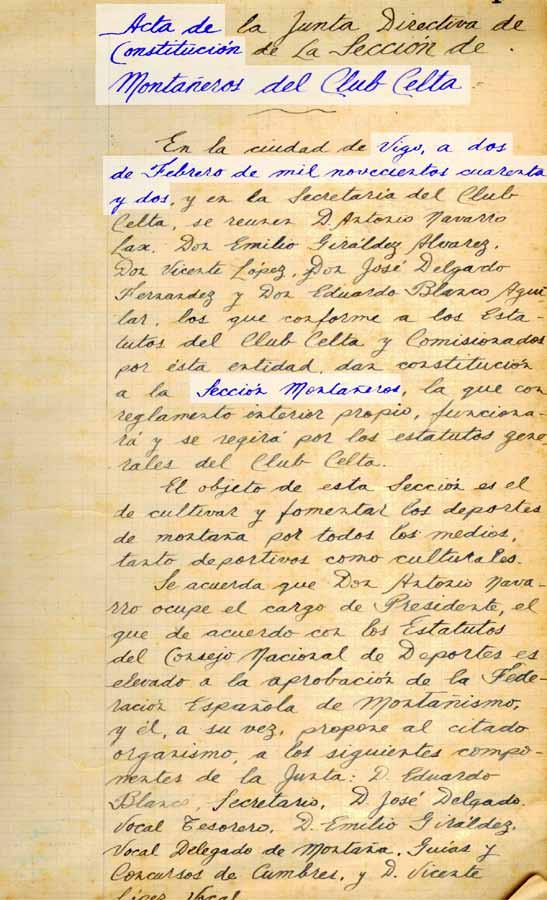 Acta de la Junta Directiva de
Constitución de La Sección de
Montañeros del Club Celta.
En la ciudad de Vigo, a dos
de Febrero de mil novecientos cuarenta
y dos, y en la Secretaria del Club
Celta, se reunen D. Antonio Navarro
Lax, Don Emilio Giráldez Alvarez,
Don Vicente López, Don José Delgado
Fernandez y Don Eduardo Blanco Agui-
lar, los que conforme a los Esta-
tutos del Club Celta y Comisionados
por ésta entidad, dan constitución
a la Sección Montañeros, la que con
reglamento interior propio, funciona-
rá y se regirá por los estatutos gene-
rales del Club Celta.
El objeto de esta Sección es el
de cultivar y fomentar los deportes
de montaña por todos los medios,
tanto deportivos como culturales.
Se acuerda que Don Antonio Nava-
rro ocupe el cargo de Presidente, el
que de acuerdo con los Estatutos
del Consejo Nacional de Deportes es
elevado a la aprobación de la Fede-
ración Española de Montañismo,
y él, a su vez, propone al citado
organismo, a los siguientes compo-
nentes de la Junta: D. Eduardo
Blanco, Secretario, D. José Delgado,
Vocal Tesorero, D. Emilio Giráldez,
Vocal Delegado de Montaña, Guías y
Concursos de Cumbres, y D. Vicente
López Vocal